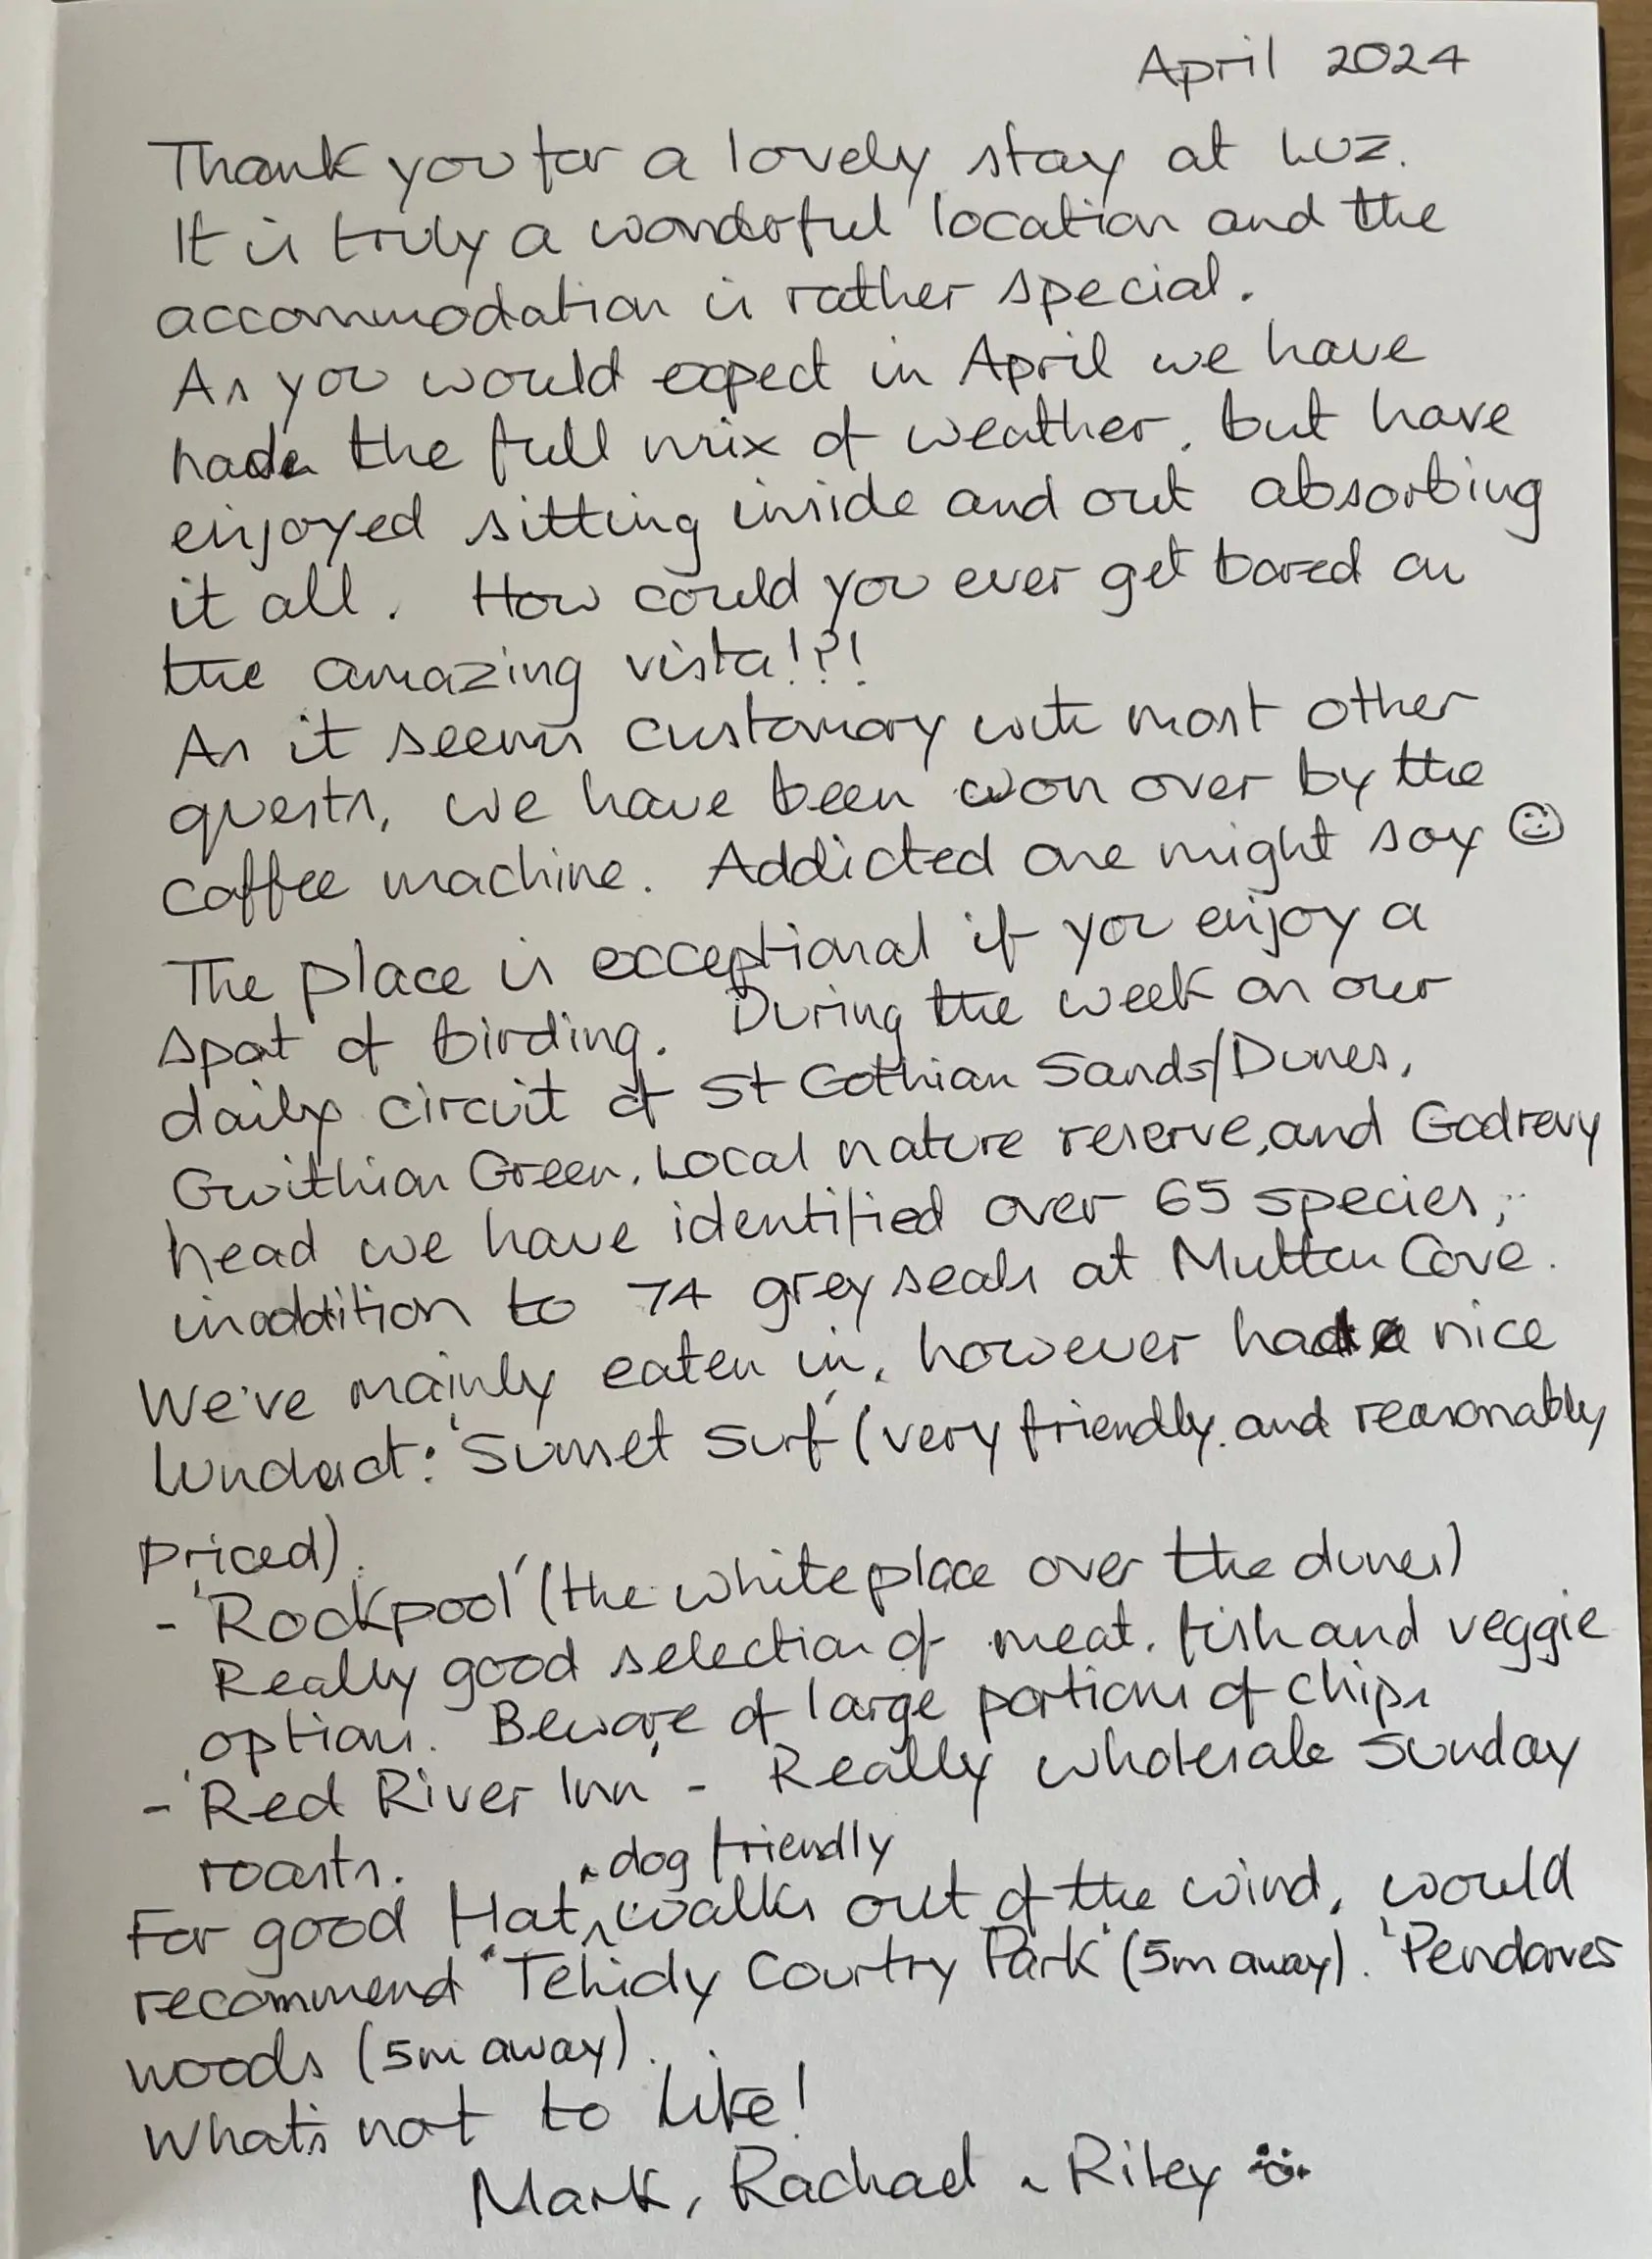 April 2024
Thank you for a lovely stay at Luz.
It is truly a wonderful location and the
accommodation is rather special.
As you would expect in April we have
had the full mix of weather, but have
enjoyed sitting inside and out absorbing
it all. How could you ever get bored on
the amazing vista!?!
As it seems customary with most other
guests, we have been won over by the
coffee machine. Addicted one might say ☺
The place is exceptional if you enjoy a
spot of birding. During the week on our
daily circuit of St Gothian Sands/Dunes,
Gwithian Green, Local nature reserve, and Godrevy
head we have identified over 65 species,
in addition to 74 grey seals at Mutton Cove.
We've mainly eaten in, however had a nice
lunch at: 'Sunset Surf' (very friendly and reasonably
priced).
- 'Rockpool' (the white place over the dunes)
Really good selection of meat, fish and veggie
options. Beware of large portions of chips
- 'Red River Inn' - Really wholesale Sunday
roasts.
For good flat, dog friendly walks out of the wind, would
recommend 'Tehidy Country Park' (5m away). 'Pendarves
woods (5m away).
What's not to like!
Mark, Rachael & Riley